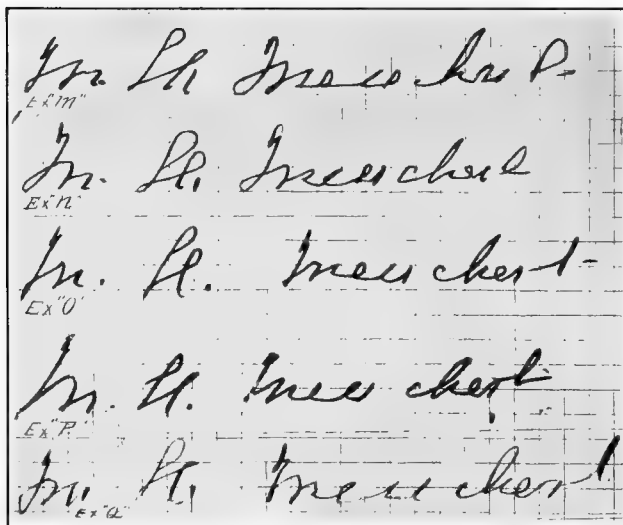 M. H. Meuchert
Ex "M"
M. H. Meuchert
Ex "N"
M. H. Meuchert
Ex "O"
M. H. Meuchert
Ex "P"
M. H. Meuchert
Ex "Q"